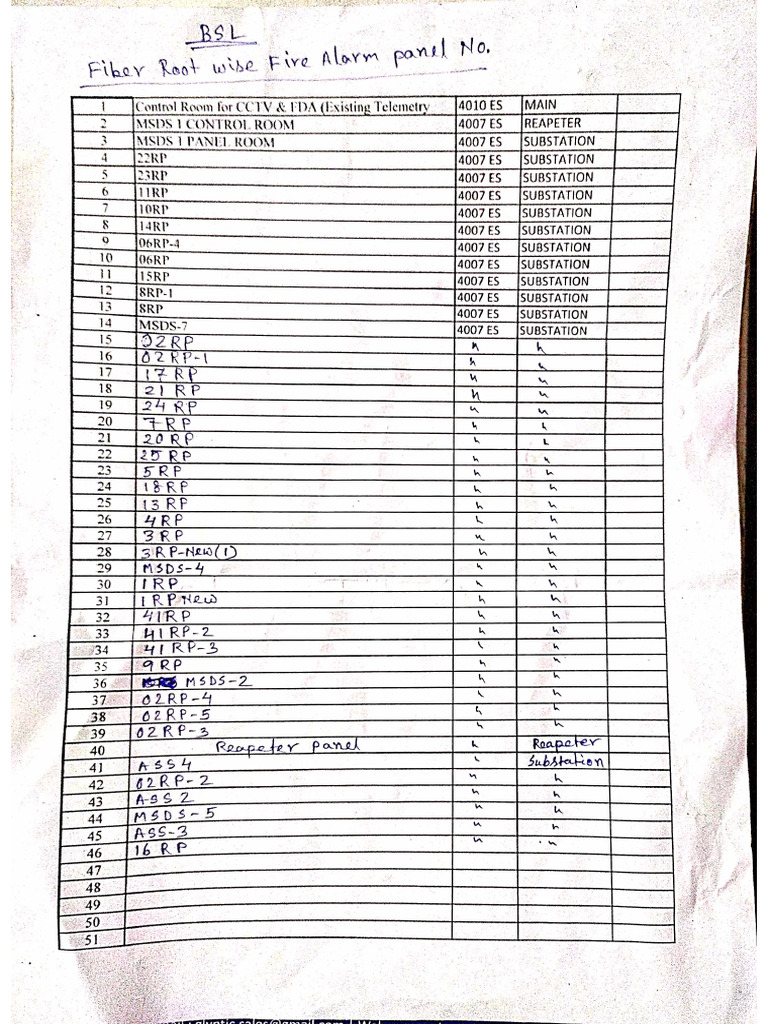 BSL
Fiber Root wise Fire Alarm panel No.
1 Control Room for CCTV & FDA (Existing Telemetry 4010 ES MAIN
2 MSDS 1 CONTROL ROOM 4007 ES REAPETER
3 MSDS 1 PANEL ROOM 4007 ES SUBSTATION
4 22RP 4007 ES SUBSTATION
5 23RP 4007 ES SUBSTATION
6 11RP 4007 ES SUBSTATION
7 10RP 4007 ES SUBSTATION
8 14RP 4007 ES SUBSTATION
9 06RP-4 4007 ES SUBSTATION
10 06RP 4007 ES SUBSTATION
11 15RP 4007 ES SUBSTATION
12 8RP-1 4007 ES SUBSTATION
13 8RP 4007 ES SUBSTATION
14 MSDS-7 4007 ES SUBSTATION
15 02RP " "
16 02RP-1 " "
17 17 RP " "
18 21 RP " "
19 24 RP " "
20 7 RP " "
21 20 RP " "
22 25 RP " "
23 5 RP " "
24 18 RP " "
25 13 RP " "
26 4 RP " "
27 3 RP " "
28 3 RP-New(1) " "
29 MSDS-4 " "
30 1 RP " "
31 1 RP New " "
32 41RP " "
33 41RP-2 " "
34 41RP-3 " "
35 9 RP " "
36 MSDS-2 " "
37 02RP-4 " "
38 02RP-5 " "
39 02RP-3 " "
40 Reapeter panel " Reapeter
41 ASS4 " Substation
42 02RP-2 " "
43 ASS2 " "
44 MSDS-5 " "
45 ASS-3 " "
46 16 RP " "
47
48
49
50
51